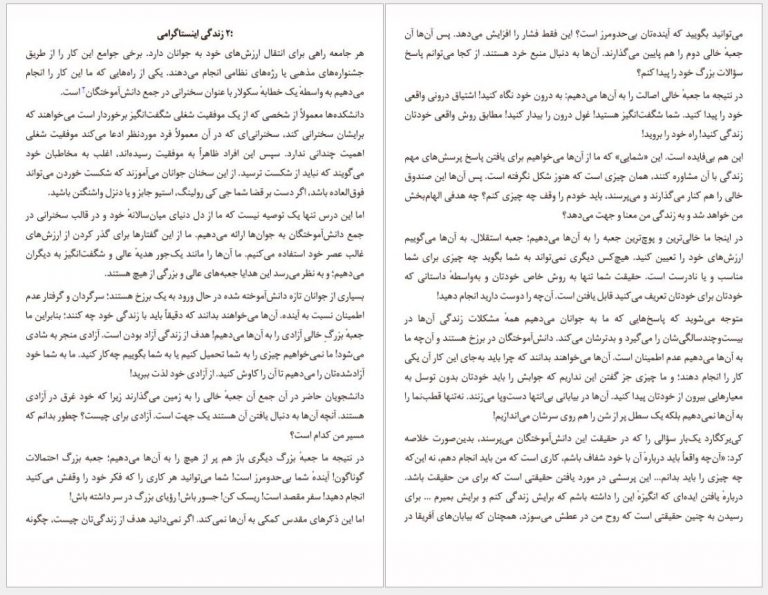 ۲: زندگی اینستاگرامی
هر جامعه راهی برای انتقال ارزش‌های خود به جوانان دارد. برخی جوامع این کار را از طریق
جشنواره‌های مذهبی یا رژه‌های نظامی انجام می‌دهند. یکی از راه‌هایی که ما این کار را انجام
می‌دهیم به واسطهٔ یک خطابهٔ سکولار با عنوان سخنرانی در جمع دانش‌آموختگان است.
دانشکده‌ها معمولاً از شخصی که از یک موفقیت شغلی شگفت‌انگیز برخوردار است می‌خواهند که
برایشان سخنرانی کند، سخنرانی‌ای که در آن معمولاً فرد موردنظر ادعا می‌کند موفقیت شغلی
اهمیت چندانی ندارد. سپس این افراد ظاهراً به موفقیت رسیده‌اند، اغلب به مخاطبان خود
می‌گویند که نباید از شکست ترسید. از این سخنان جوانان می‌آموزند که شکست خوردن می‌تواند
فوق‌العاده باشد، اگر دست بر قضا شما جی کی رولینگ، استیو جابز و یا دنزل واشنگتن باشید.
اما این درس تنها یک توصیه نیست که ما از دل دنیای میان‌سالانهٔ خود و در قالب سخنرانی در
جمع دانش‌آموختگان به جوان‌ها ارائه می‌دهیم. ما از این گفتارها برای گذر کردن از ارزش‌های
غالب عصر خود استفاده می‌کنیم. ما آن‌ها را مانند یک‌جور هدیهٔ عالی و شگفت‌انگیز به دیگران
می‌دهیم؛ و به نظر می‌رسد این هدایا جعبه‌های عالی و بزرگی از هیچ هستند.
بسیاری از جوانان تازه دانش‌آموخته شده در حال ورود به یک برزخ هستند؛ سرگردان و گرفتار عدم
اطمینان نسبت به آینده. آن‌ها می‌خواهند بدانند که دقیقاً باید با زندگی خود چه کنند؛ بنابراین ما
جعبهٔ بزرگِ خالی آزادی را به آن‌ها می‌دهیم! هدف از زندگی آزاد بودن است. آزادی منجر به شادی
می‌شود! ما نمی‌خواهیم چیزی را به شما تحمیل کنیم یا به شما بگوییم چه‌کار کنید. ما به شما خود
آزادشده‌تان را می‌دهیم تا آن را کاوش کنید. از آزادی خود لذت ببرید!
دانشجویان حاضر در آن جمع آن جعبهٔ خالی را به زمین می‌گذارند زیرا که خود غرق در آزادی
هستند. آنچه آن‌ها به دنبال یافتن آن هستند یک جهت است. آزادی برای چیست؟ چطور بدانم که
مسیر من کدام است؟
در نتیجه ما جعبهٔ بزرگ دیگری باز هم پر از هیچ را به آن‌ها می‌دهیم؛ جعبهٔ بزرگ احتمالات
گوناگون! آیندهٔ شما بی‌حدومرز است! شما می‌توانید هر کاری را که فکر خود را وقفش می‌کنید
انجام دهید! سفر مقصد است! ریسک کن! جسور باش! رؤیای بزرگ در سر داشته باش!
اما این ذکرهای مقدس کمکی به آن‌ها نمی‌کند. اگر نمی‌دانید هدف از زندگی‌تان چیست، چگونه
می‌توانید بگویید که آینده‌تان بی‌حدومرز است؟ این فقط فشار را افزایش می‌دهد. پس آن‌ها آن
جعبهٔ خالی دوم را هم پایین می‌گذارند. آن‌ها به دنبال منبع خرد هستند. از کجا می‌توانم پاسخ
سؤالات بزرگ خود را پیدا کنم؟
در نتیجه ما جعبهٔ خالی اصالت را به آن‌ها می‌دهیم: به درون خود نگاه کنید! اشتیاق درونی واقعی
خود را پیدا کنید. شما شگفت‌انگیز هستید! غول درون را بیدار کنید! مطابق روش واقعی خودتان
زندگی کنید! راه خود را بروید!
این هم بی‌فایده است. این «شمایی» که ما از آن‌ها می‌خواهیم برای یافتن پاسخ پرسش‌های مهم
زندگی با آن مشاوره کنند، همان چیزی است که هنوز شکل نگرفته است. پس آن‌ها این صندوق
خالی را هم کنار می‌گذارند و می‌پرسند، باید خودم را وقف چه چیزی کنم؟ چه هدفی الهام‌بخش
من خواهد شد و به زندگی من معنا و جهت می‌دهد؟
در اینجا ما خالی‌ترین و پوچ‌ترین جعبه را به آن‌ها می‌دهیم؛ جعبه استقلال. به آن‌ها می‌گوییم
ارزش‌های خود را تعیین کنید. هیچ‌کس دیگری نمی‌تواند به شما بگوید چه چیزی برای شما
مناسب و یا نادرست است. حقیقت شما تنها به روش خاص خودتان و به‌واسطهٔ داستانی که
خودتان برای خودتان تعریف می‌کنید قابل یافتن است. آن‌چه را دوست دارید انجام دهید!
متوجه می‌شوید که پاسخ‌هایی که ما به جوانان می‌دهیم همهٔ مشکلات زندگی آن‌ها در
بیست‌وچندسالگی‌شان را می‌گیرد و بدترشان می‌کند. دانش‌آموختگان در برزخ هستند و آن‌چه ما
به آن‌ها می‌دهیم عدم اطمینان است. آن‌ها می‌خواهند بدانند که چرا باید به‌جای این کار آن یکی
کار را انجام دهند؛ و ما چیزی جز گفتن این نداریم که جوابش را باید خودتان بدون توسل به
معیارهایی بیرون از خودتان پیدا کنید. آن‌ها در بیابانی بی‌انتها دست‌وپا می‌زنند. نه‌تنها قطب‌نما را
به آن‌ها نمی‌دهیم بلکه یک سطل پر از شن را هم روی سرشان می‌اندازیم!
کی‌یرکگارد یک‌بار سؤالی را که در حقیقت این دانش‌آموختگان می‌پرسند، بدین‌صورت خلاصه
کرد: «آن‌چه واقعاً باید دربارهٔ آن با خود شفاف باشم، کاری است که من باید انجام دهم، نه این‌که
چه چیزی را باید بدانم... این پرسشی در مورد یافتن حقیقتی است که برای من حقیقت باشد.
دربارهٔ یافتن ایده‌ای که انگیزهٔ این را داشته باشم که برایش زندگی کنم و برایش بمیرم ... برای
رسیدن به چنین حقیقتی است که روح من در عطش می‌سوزد، همچنان که بیابان‌های آفریقا در